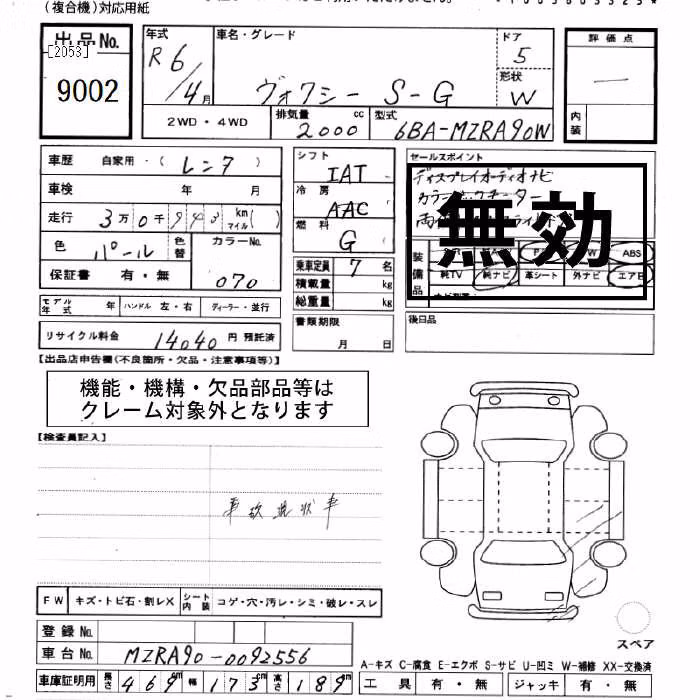 (複合機)対応用紙
出品No. 年式 車名・グレード ドア 評価点
[2053] R6/4月 ヴォクシー S-G 5 —
9002 形状 W
2WD・4WD 排気量 2000 cc 型式 6BA-MZRA90W 内装
車歴 自家用・(レンタ) シフト IAT セールスポイント
車検 年 月 冷房 AAC ディスプレイオーディオナビ
走行 3万0千 km マイル( ) 燃料 G 無効
色 パール 色替 カラーNo. 070 装備品 ABS
保証書 有・無 乗車定員 7名 純TV 純ナビ 革シート 外ナビ エアB
積載量 kg
モデル年式 年 ハンドル 左・右 ディーラー・並行 総重量 kg
リサイクル料金 14040円 預託済 書類期限 年 月 日 後日品
【出品店申告欄(不良箇所・欠品・注意事項等)】
機能・機構・欠品部品等は
クレーム対象外となります
【検査員記入】
事故現状車
FW キズ・トビ石・割レX シート内装 コゲ・穴・汚レ・シミ・破レ・スレ
登録No.
スペア
車台No. MZRA90-0092556
A-キズ C-腐食 E-エクボ S-サビ U-凹ミ W-補修 XX-交換済
車庫証明用 長さ 469cm 幅 173cm 高さ 189cm 工具 有・無 ジャッキ 有・無